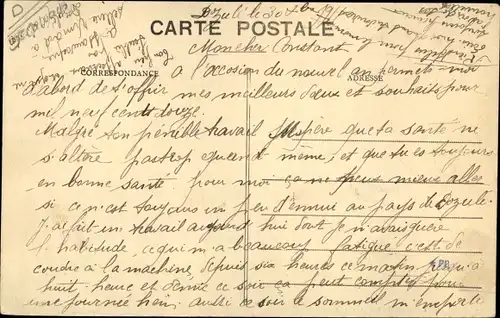 Dozulé le 30 Xbre 19
CARTE POSTALE
Mon cher Constant
CORRESPONDANCE
ADRESSE
à l'occasion du nouvel an permets-moi
d'abord de t'offrir mes meilleurs vœux et souhaits pour
mil neuf cent douze.
Malgré ton pénible travail j'espère que ta santé ne
s'altère pas trop quand même, et que tu es toujours
en bonne santé pour moi ça ne peut mieux aller
si ce n'est toujours un peu d'ennui au pays de Dozulé.
J'ai fait un travail aujourd'hui dont je n'avais guère
l'habitude, ce qui m'a beaucoup fatigué c'est de
coudre à la machine, depuis six heures ce matin jusqu'à
huit heures et demie ce soir ça peut compter pour
une journée hein, aussi ce soir le sommeil m'emporte